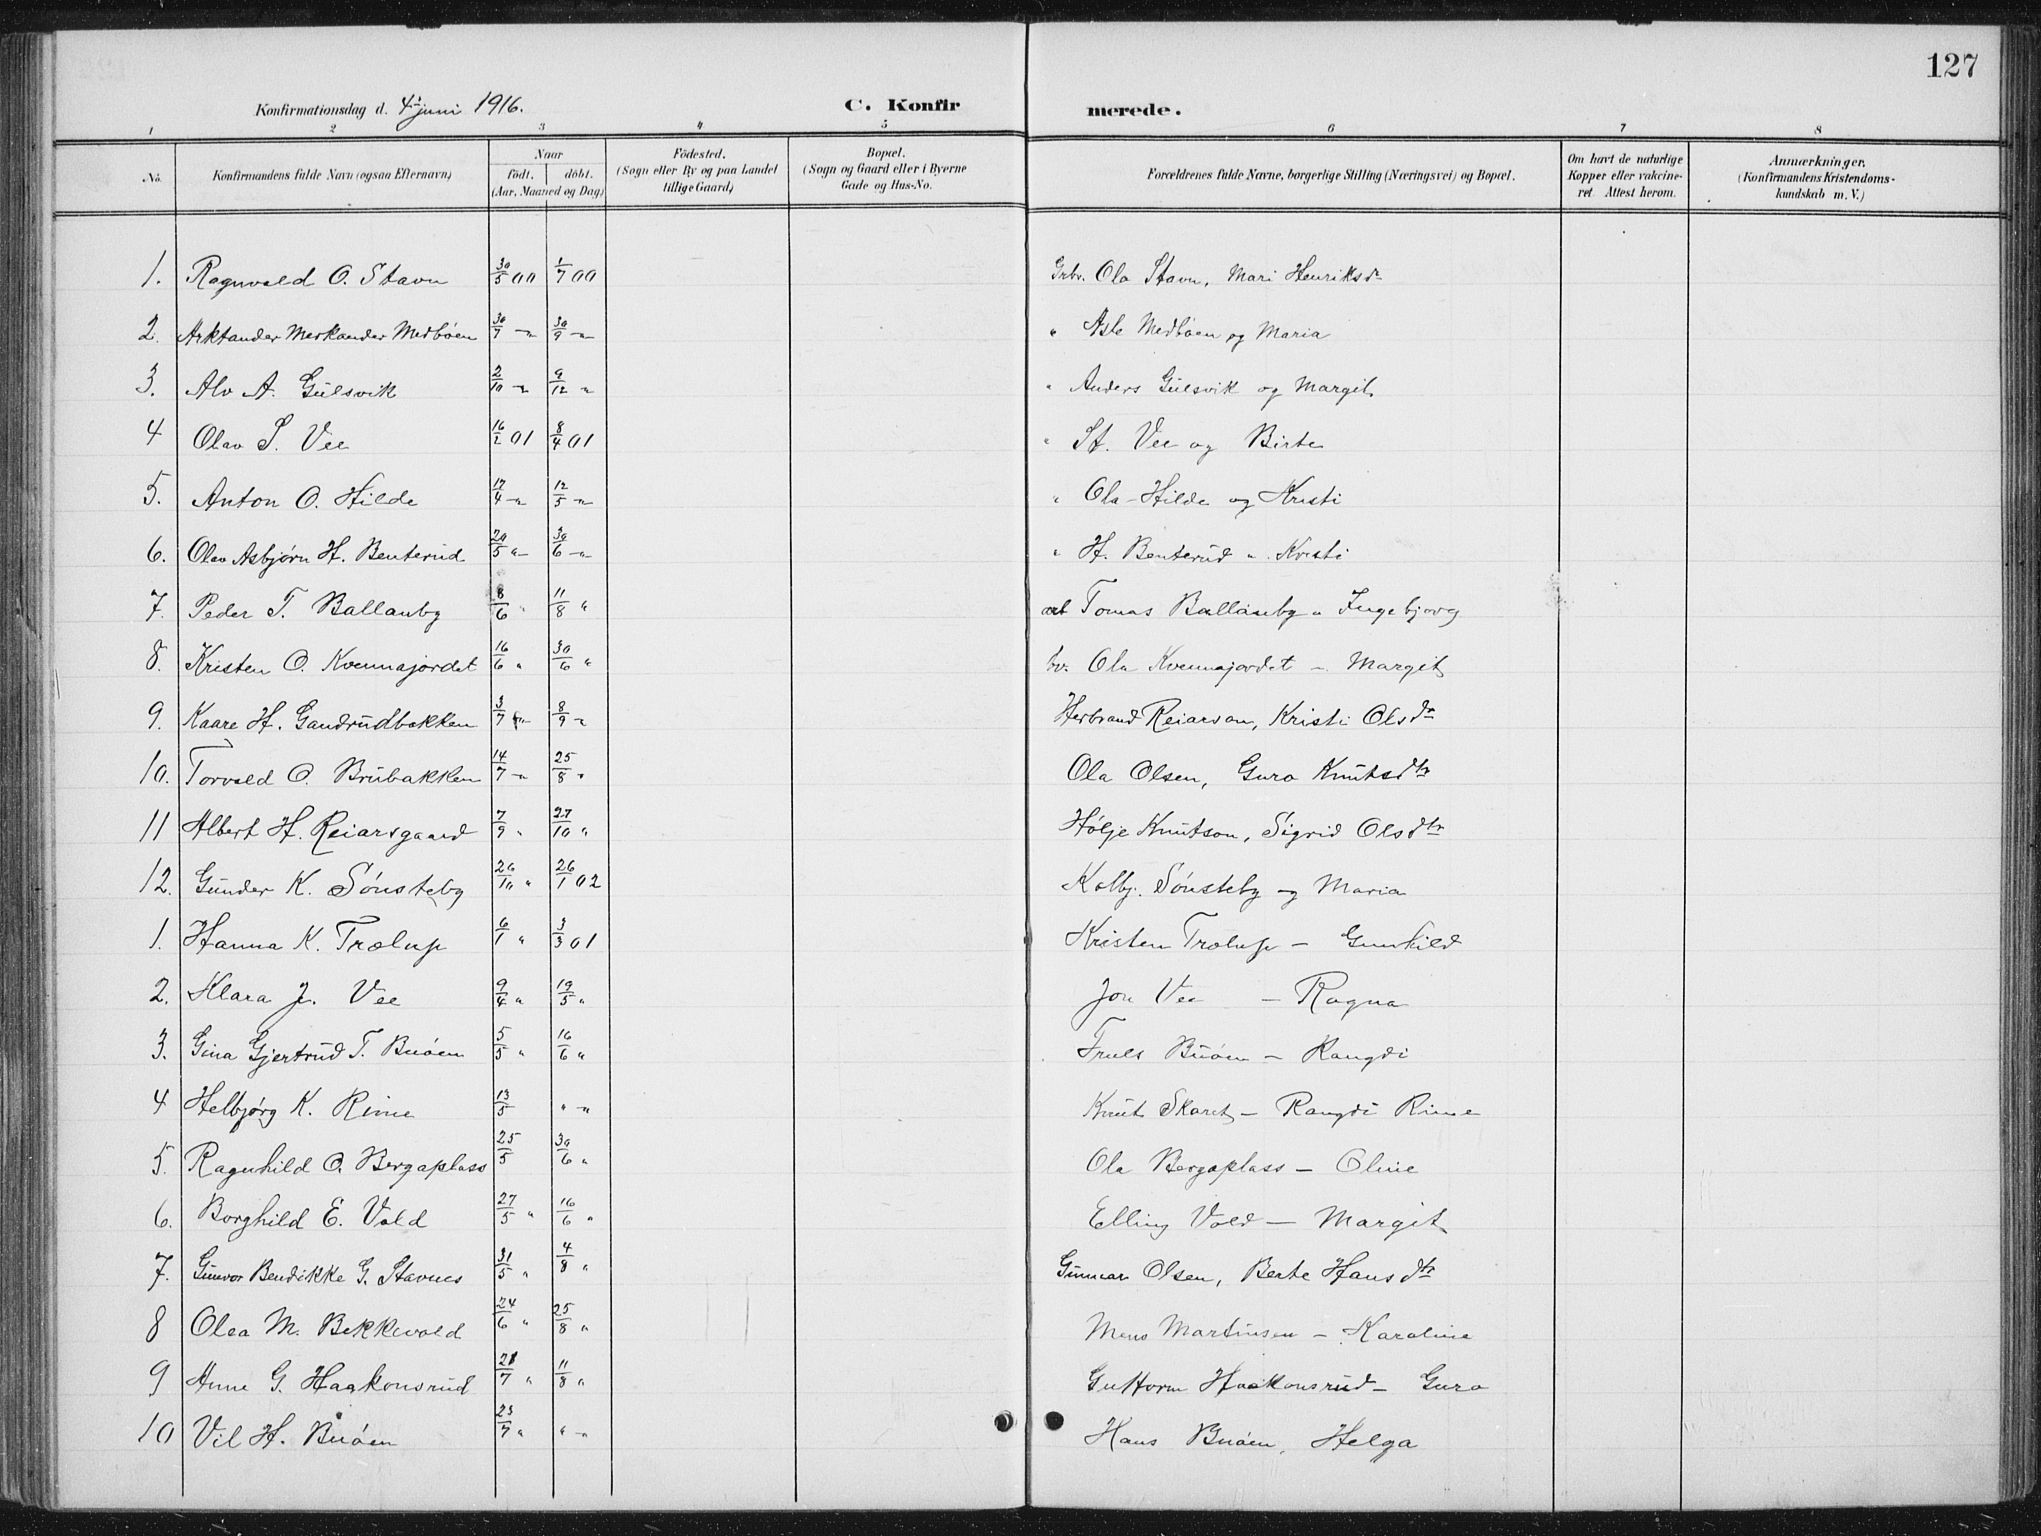 127
Konfirmationsdag d. 4 juni 1916. C. Konfirmerede.
1 2 3 4 5 6 7 8
No. Konfirmandens fulde Navn (ogsaa Efternavn) Naar født. døbt. (Aar, Maaned og Dag) Födested. (Sogn eller By og paa Landet tillige Gaard) Bopæl. (Sogn og Gaard eller i Byerne Gade og Hus-No. Forældrenes fulde Navne, borgerlige Stilling (Næringsvei) og Bopæl. Om havt de naturlige Kopper eller vakcineret. Attest herom. Anmærkninger. (Konfirmandens Kristendomskundskab m. V.)
1. Ragnvald O. Stavn 30/5 00 1/7 00 Grbr. Ola Stavn, Mari Henriksd
2. Arktander Merkander Medbøen 30/7 -"- 30/9 -"- " Asle Medbøen og Maria
3. Alv A. Gulsvik 2/10 -"- 9/12 " " Anders Gulsvik og Margit
4 Olav S. Vee 16/2 01 8/4 01 " St. Vee og Birte
5. Anton O. Hilde 17/4 -"- 12/5 -"- " Ola Hilde og Kristi
6. Olav Asbjørn H. Benterud 20/5 "- 30/6 -"- " H. Benterud " Kristi
7. Peder T. Ballanby 8/6 " 11/8 " arb Tomas Ballanby " Ingebjørg
8. Kristen O. Kvennajordet 16/6 " 30/6 " br. Ola Kvennajordet - Margit
9. Kaare H. Gandrudbakken 3/7 "- 8/9 -"- Herbrand Reiarson, Kristi Olsdtr
10. Torvald O. Brubakken 14/7 -"- 25/8 " Ola Olsen, Guro Knutsdtr
11 Albert H. Reiarsgaard 7/9 " 27/10 " Hølje Knutson, Sigrid Olsdtr
12. Gunder K. Sønsteby 26/10 " 26/1 02 Kolbj. Sønsteby og Maria
1. Hanna K. Trolup 6/1 " 3/3 01 Kristen Trolup - Gunhild
2. Klara J. Vee 9/4 " 19/5 " Jon Vee - Ragna
3. Gina Gjertrud T. Buøen 5/5 " 16/6 " Truls Buøen - Rangdi
4 Helbjørg K. Rime 13/5 " -"- Knut Skaret - Rangdi Rime
5. Ragnhild O. Bergaplass 25/5 30/6 " Ola Bergaplass - Oline
6. Borghild E. Vold 27/5 " 16/6 " Elling Vold - Margit
7. Gunvor Bendikke G. Stavnes 31/5 " 4/8 " Gunnar Olsen, Berte Hansdtr
8 Olea M. Bekkevold 24/6 " 25/8 " Mons Martinsen - Karoline
9 Anne G. Haakonsrud 21/7 " 11/8 " Guttorm Haakonsrud - Guro
10 Vil H. Buøen 23/7 " " -"- Hans Buøen, Helga